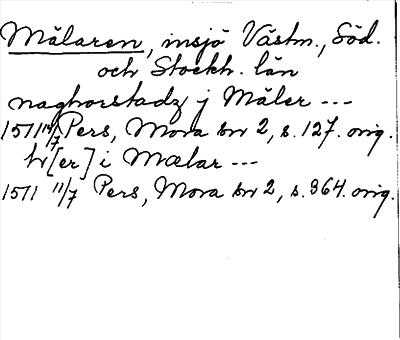 Mälaren, insjö Västm., Söd.
och Stockh. län
naghorstadz j Mäler ---
1511 11/7 Pers, Mora br 2, s. 127. orig.
hr[er] i Mælar ---
1511 11/7 Pers, Mora br 2, s. 364. orig.